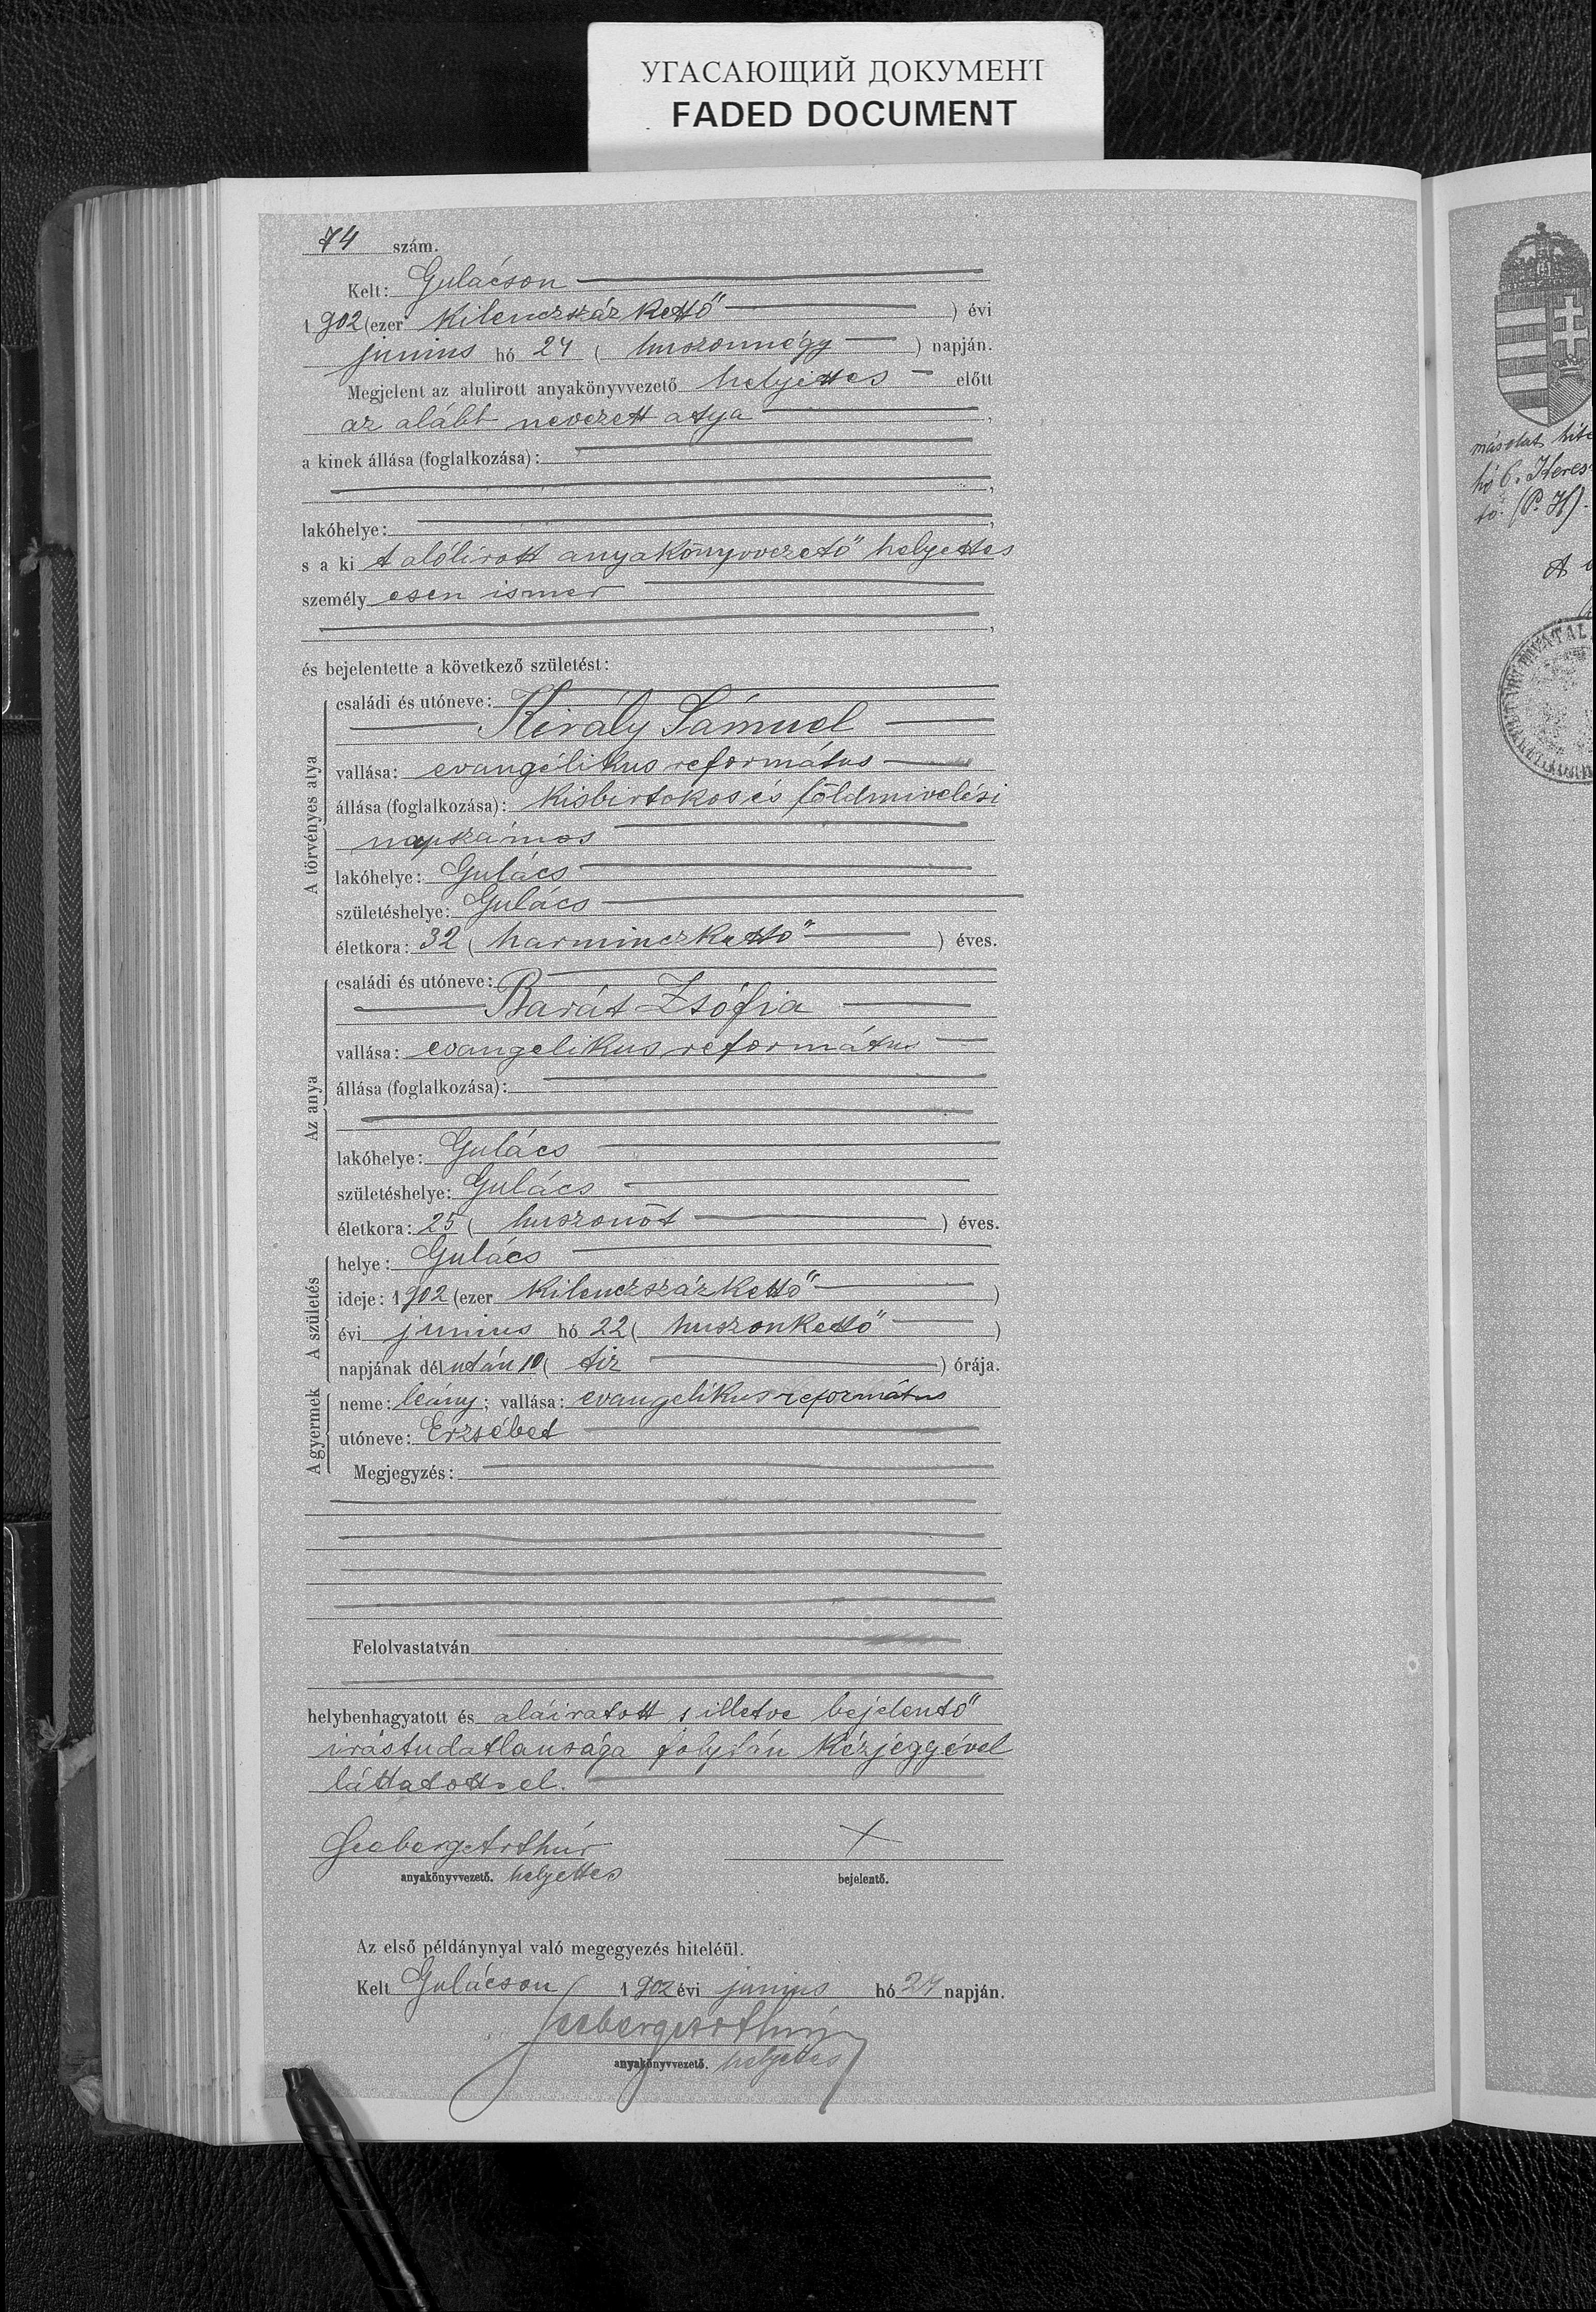 УГАСАЮЩИЙ ДОКУМЕНТ
FADED DOCUMENT
74 szám.
Kelt: Gulácson
1902 (ezer kilenczszáz kettő ) évi
junius hó 24 ( huszonnégy ) napján.
Megjelent az alulirott anyakönyvvezető helyettes előtt
az alább nevezett atya ,
a kinek állása (foglalkozása):
,
lakóhelye: ,
s a ki t alólirott anyakönyvvezető helyettes
személy esen ismer
,
és bejelentette a következő születést:
A törvényes atya
családi és utóneve:
Király Sámuel
vallása: evangélikus református
állása (foglalkozása): kisbirtokos és földmivelési
napszámos
lakóhelye: Gulács
születéshelye: Gulács
életkora: 32 ( harminczkettő ) éves.
Az anya
családi és utóneve:
Barát Zsófia
vallása: evangelikus református
állása (foglalkozása):
lakóhelye: Gulács
születéshelye: Gulács
életkora: 25 ( huszonöt ) éves.
A születés
helye: Gulács
ideje: 1902 (ezer kilenczszáz kettő )
évi junius hó 22 ( huszonkettő )
napjának dél után 10 ( tiz ) órája.
A gyermek
neme: leány; vallása: evangelikus református
utóneve: Erzsébet
Megjegyzés:
Felolvastatván
helybenhagyatott és aláiratott, illetve bejelentő
irástudatlansága folytán kézjegyével
láttatott el.
Seeberg Arthúr X
anyakönyvvezető. helyettes bejelentő.
Az első példánynyal való megegyezés hiteléül.
Kelt Gulácson 1902 évi junius hó 24 napján.
Seeberg Arthúr
anyakönyvvezető. helyettes
másolat
hó 6.
(P. H).
A